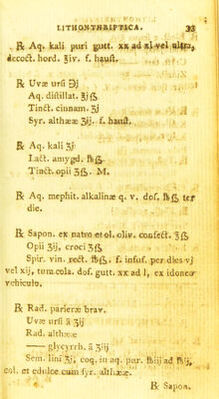 LITHONTHRIPTICA. 33
℞ Aq. kali puri gutt. xx ad xl vel ultra,
decoct. hord. ℥iv. f. hauſt.
℞ Uvæ urſi ℈j
Aq. diſtillat. ℥jſs
Tinct. cinnam. ʒj
Syr. althææ ʒij. f. hauſt.
℞ Aq. kali ʒj
Lact. amygd. ℔ſs
Tinct. opii ʒſs. M.
℞ Aq. mephit. alkalinæ q. v. doſ. ℔ſs ter
die.
℞ Sapon. ex natro et ol. oliv. confect. ℥ſs
Opii ʒij, croci ʒſs
Spir. vin. rect. ℔ſs. f. infuſ. per dies vj
vel xij, tum cola. doſ. gutt. xx ad l, ex idoneo
vehiculo.
℞ Rad. parieræ brav.
Uvæ urſi ā ʒij
Rad. althææ
—— glycyrrh. ā ʒiij
Sem. lini ʒj, coq. in aq. pur. ℔iij ad ℔ij,
col. et edulce cum ſyr. althææ.
℞ Sapon.